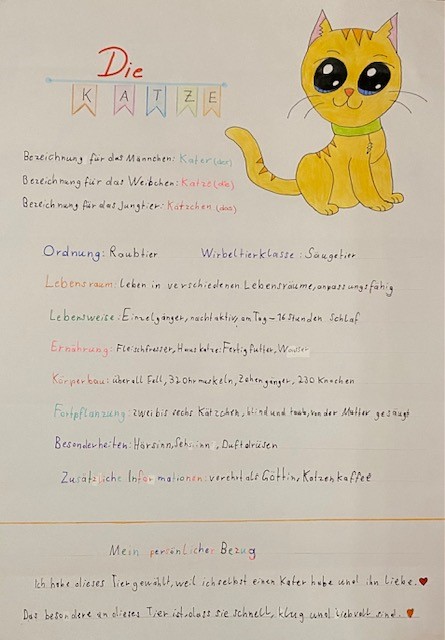 Die
KATZE
Bezeichnung für das Männchen: Kater (der)
Bezeichnung für das Weibchen: Katze (die)
Bezeichnung für das Jungtier: Kätzchen (das)
Ordnung: Raubtier Wirbeltierklasse: Säugetier
Lebensraum: leben in verschiedenen Lebensräume, anpassungsfähig
Lebensweise: Einzelgänger, nachtaktiv, am Tag - 16 Stunden Schlaf
Ernährung: Fleischfresser, Hauskatze: Fertigfutter, Wasser
Körperbau: überall Fell, 32 Ohrmuskeln, Zehengänger, 230 Knochen
Fortpflanzung: zwei bis sechs Kätzchen, blind und taub, von der Mutter gesäugt
Besonderheiten: Hörsinn, Sehsinn, Duftdrüsen
Zusätzliche Informationen: verehrt als Göttin, Katzenkaffee
Mein persönlicher Bezug
Ich habe dieses Tier gewählt, weil ich selbst einen Kater habe und ihn liebe.
Das besondere an dieses Tier ist, dass sie schnell, klug und liebvoll sind.